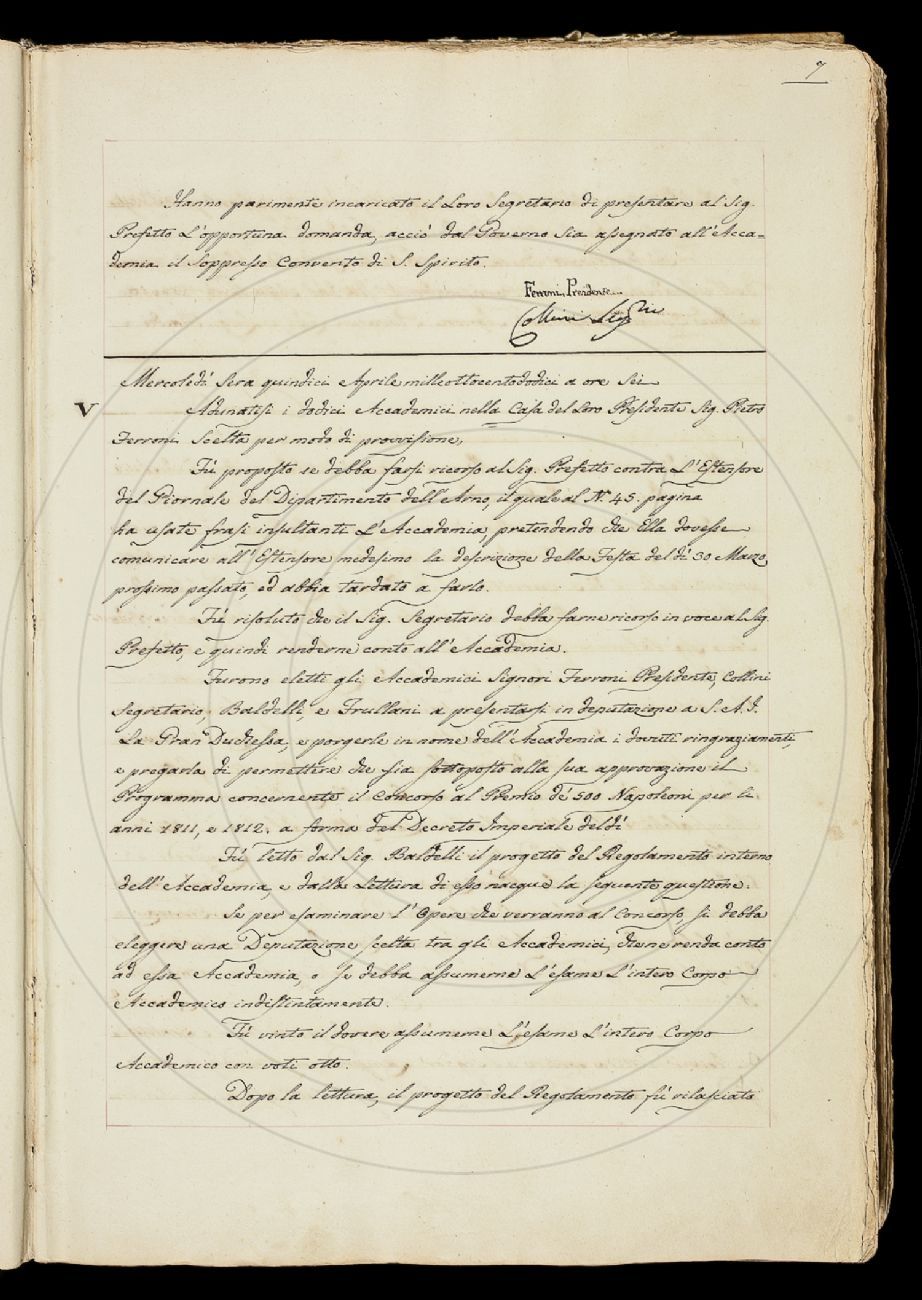 7
Hanno parimente incaricato il Loro Segretario di presentare al Sig.
Prefetto L'opportuna domanda, acciò dal Governo sia assegnato all'Acca=
demia il Soppresso Convento di S. Spirito.
Ferroni Presidente
Collini Seg.rio
Mercoledì Sera quindici Aprile milleottocentododici a ore Sei
V
Adunatisi i dodici Accademici nella Casa del Loro Presidente Sig. Pietro
Ferroni Scelta per modo di provvisione,
Fù proposto se debba farsi ricorso al Sig. Prefetto contro L'Estensore
del Giornale del Dipartimento dell'Arno, il quale al N.° 45. pagina
ha usate frasi insultanti L'Accademia, pretendendo che Ella dovesse
comunicare all'Estensore medesimo la descrizione della Festa del dì 30 Marzo
prossimo passato, ed abbia tardato a farlo.
Fù risoluto che il Sig. Segretario debba farne ricorso in voce al Sig.
Prefetto, e quindi renderne conto all'Accademia.
Furono eletti gli Accademici Signori Ferroni Presidente, Collini
Segretario, Baldelli, e Frullani a presentarsi in deputazione a S. A. I.
La Gran Duchessa, e porgerle in nome dell'Accademia i dovuti ringraziamenti,
e pregarla di permettere che sia sottoposto alla sua approvazione il
Programma concernente il Concorso al Premio de' 500 Napoleoni per li
anni 1811, e 1812. a forma del Decreto Imperiale del dì
Fù letto dal Sig. Baldelli il progetto del Regolamento interno
dell'Accademia, e dalla Lettura di esso nacque la seguente questione.
Se per esaminare l'Opere che verranno al Concorso, si debba
eleggere una Deputazione scelta tra gli Accademici, che ne renda conto
ad essa Accademia, o se debba assumerne L'esame L'intero Corpo
Accademico indistintamente.
Fù vinto il dovere assumerne L'esame L'intero Corpo
Accademico con voti otto.
Dopo la lettura, il progetto del Regolamento fù rilasciato